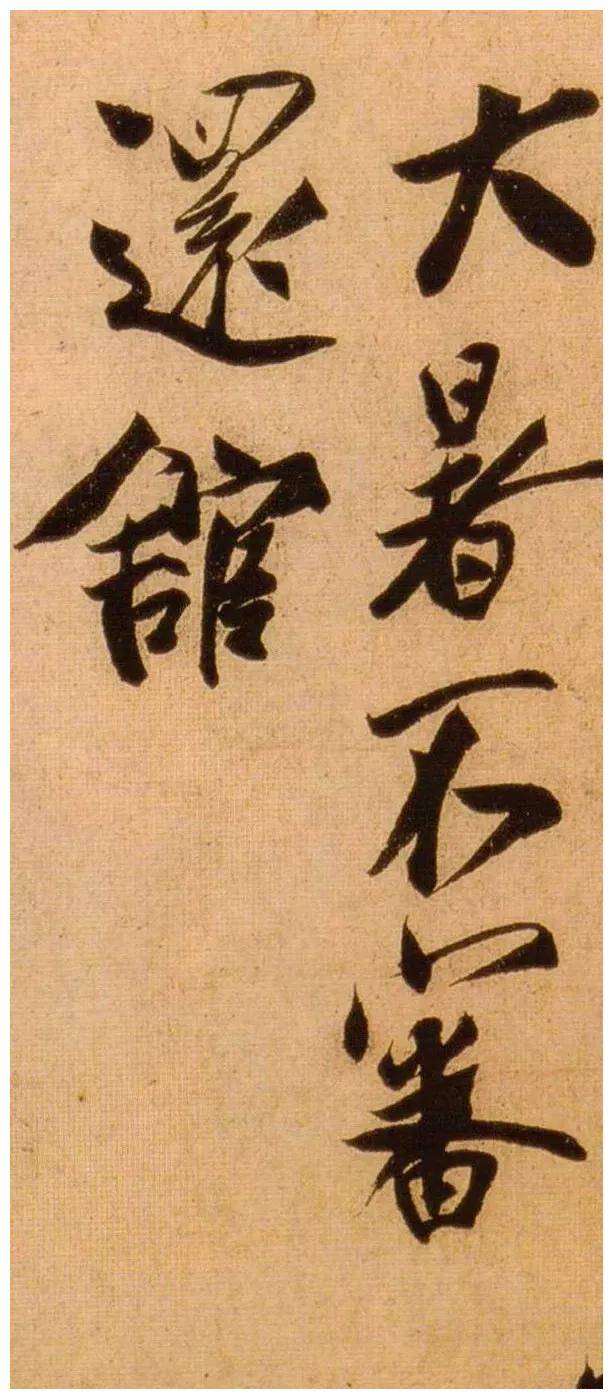 大暑不審
還館